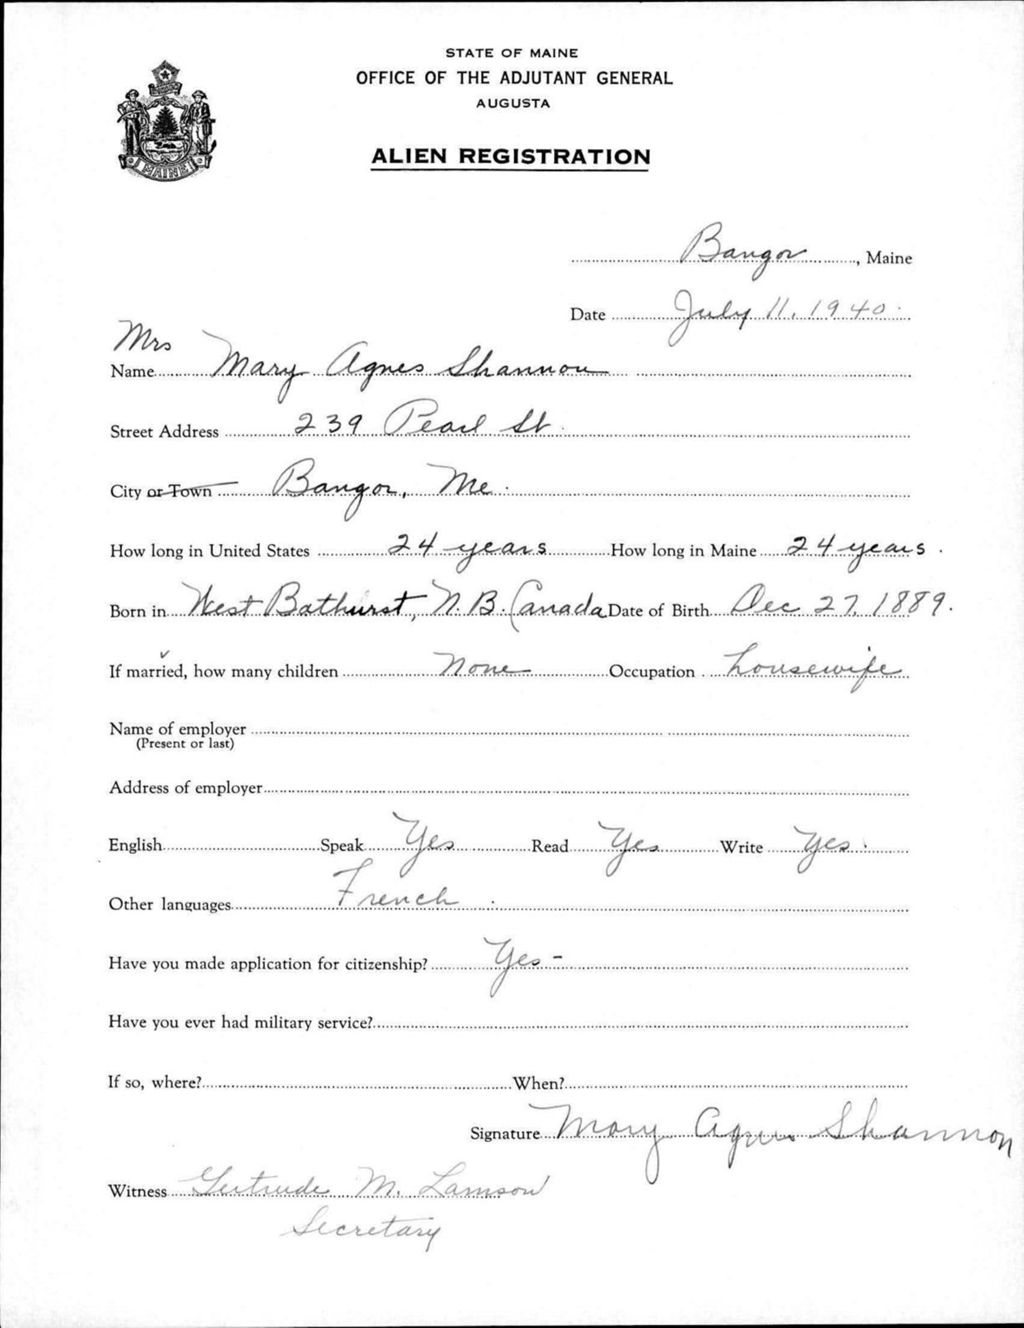 STATE OF MAINE
OFFICE OF THE ADJUTANT GENERAL
AUGUSTA
ALIEN REGISTRATION
MAINE
Bangor, Maine
Date July 11, 1940.
Mrs
Name Mary Agnes Shannon
Street Address 239 Pearl St.
City or Town Bangor, Me.
How long in United States 24 years How long in Maine 24 years.
Born in West Bathurst, N.B. Canada Date of Birth Dec 27, 1889.
If married, how many children None Occupation housewife
Name of employer
(Present or last)
Address of employer
English Speak Yes Read Yes Write Yes.
Other languages French.
Have you made application for citizenship? Yes -
Have you ever had military service?
If so, where? When?
Signature Mary Agnes Shannon
Witness Gertrude M. Lamson
Secretary